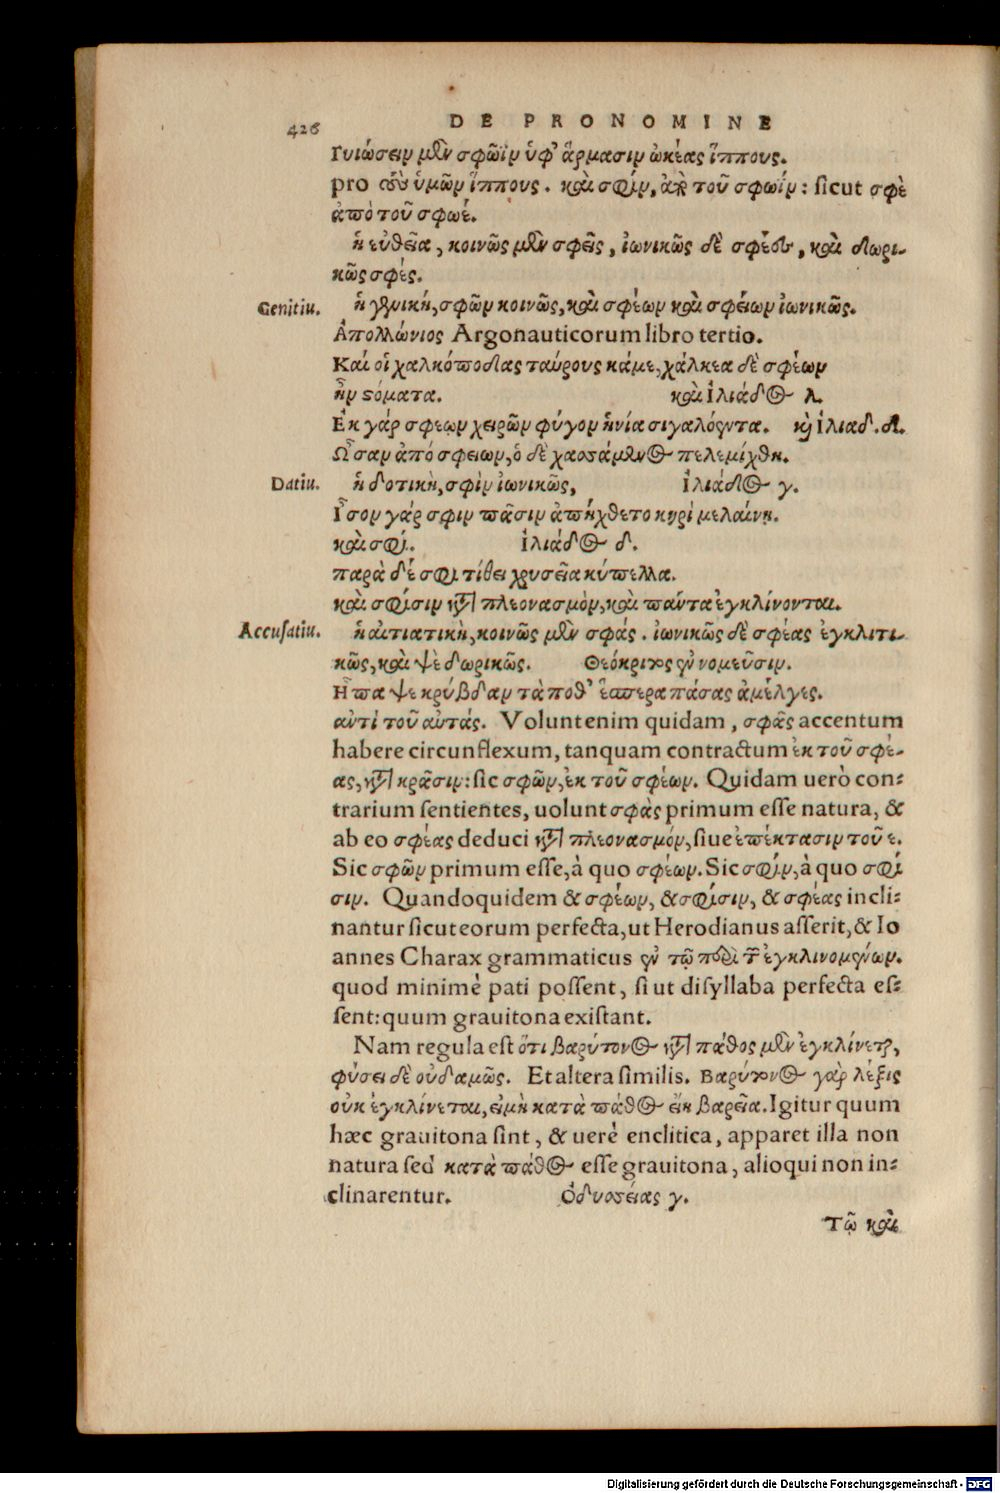 426 DE PRONOMINE
Γυιώσειν μὲν σφῶϊν ὑφ' ἅρμασιν ὠκέας ἵππους.
pro ὑμῶν ἵππους. καὶ σφίν, ἀπὸ τοῦ σφωΐν: sicut σφὲ
ἀπὸ τοῦ σφωέ.
ἡ εὐθεῖα, κοινῶς μὲν σφεῖς, ἰωνικῶς δὲ σφέες, καὶ δωρι-
κῶς σφές.
Genitiu. ἡ γενική, σφῶν κοινῶς, καὶ σφέων καὶ σφείων ἰωνικῶς.
Ἀπολλώνιος Argonauticorum libro tertio.
Καί οἱ χαλκόποδας ταύρους κάμε, χάλκεα δὲ σφέων
ἦν στόματα. καὶ Ἰλιάδος λ.
Ἐκ γάρ σφεων χειρῶν φύγον ἡνία σιγαλόεντα. καὶ Ἰλιάδ. δ.
Ὦσαν ἀπό σφειων, ὁ δὲ χασσάμενος πελεμίχθη.
Datiu. ἡ δοτικὴ, σφὶν ἰωνικῶς, Ἰλιάδος γ.
Ἶσον γάρ σφιν πᾶσιν ἀπήχθετο κηρὶ μελαίνῃ.
καὶ σφί. Ἰλιάδος δ.
παρὰ δέ σφι τίθει χρυσεῖα κύπελλα.
καὶ σφίσιν κατὰ πλεονασμὸν, καὶ πάντα ἐγκλίνονται.
Accusatiu. ἡ αἰτιατικὴ, κοινῶς μὲν σφάς. ἰωνικῶς δὲ σφέας ἐγκλιτι-
κῶς, καὶ ψὲ δωρικῶς. Θεόκριτος ἐν νομεῦσιν.
Ἦ πα ψε κρύβδαν τὰ ποθ' ἕσπερα πάσας ἀμέλγες.
αὐτὶ τοῦ αὐτάς. Volunt enim quidam, σφᾶς accentum
habere circunflexum, tanquam contractum ἐκ τοῦ σφέ-
ας, κατὰ κρᾶσιν: sic σφῶν, ἐκ τοῦ σφέων. Quidam uerò con-
trarium sentientes, uolunt σφὰς primum esse natura, &
ab eo σφέας deduci κατὰ πλεονασμόν, siue ἐπέκτασιν τοῦ ε.
Sic σφῶν primum esse, à quo σφέων. Sic σφίν, à quo σφί
σιν. Quandoquidem & σφέων, & σφίσιν, & σφέας incli-
nantur sicut eorum perfecta, ut Herodianus asserit, & Io
annes Charax grammaticus ἐν τῷ περὶ τῶν ἐγκλινομένων.
quod minimè pati possent, si ut disyllaba perfecta es-
sent: quum grauitona existant.
Nam regula est ὅτι βαρύτονος κατὰ πάθος μὲν ἐγκλίνεται,
φύσει δὲ οὐδαμῶς. Et altera similis. Βαρύτονος γὰρ λέξις
οὐκ ἐγκλίνεται, εἰ μὴ κατὰ πάθος εἴη βαρεῖα. Igitur quum
hæc grauitona sint, & uerè enclitica, apparet illa non
natura sed κατὰ πάθος esse grauitona, alioqui non in-
clinarentur. Ὀδυσσείας γ.
Τῷ καὶ
Digitalisierung gefördert durch die Deutsche Forschungsgemeinschaft - DFG